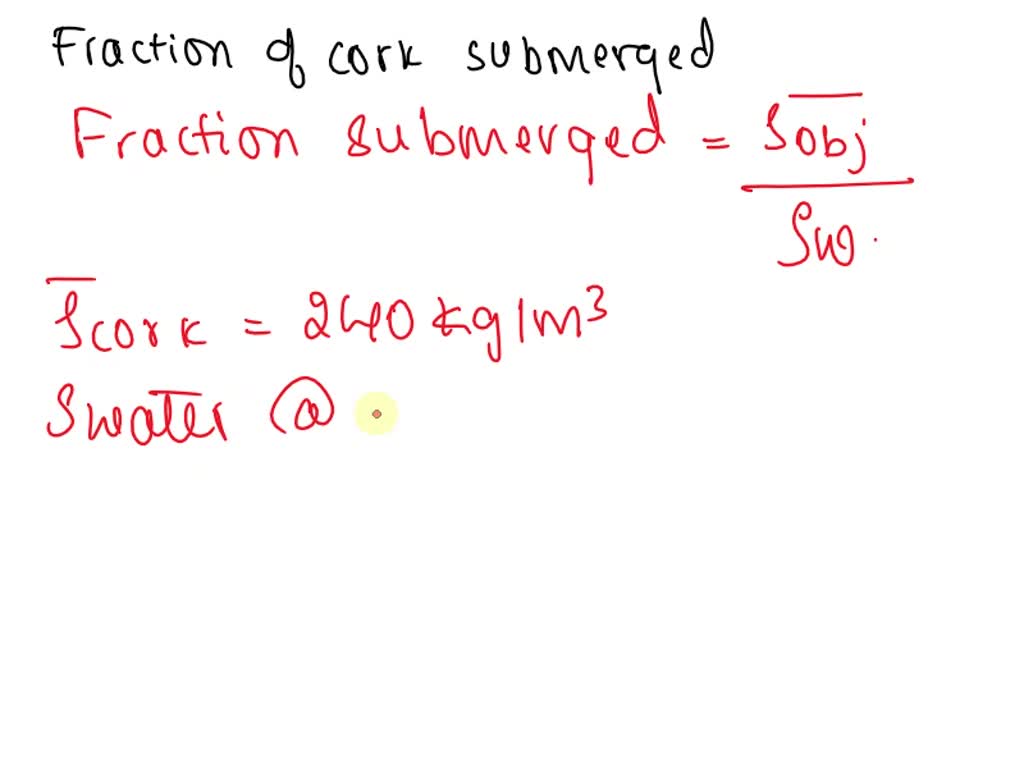 Fraction of cork submerged
Fraction submerged = ρ̅obj / ρw.
ρ̅cork = 240 kg/m³
ρwater @